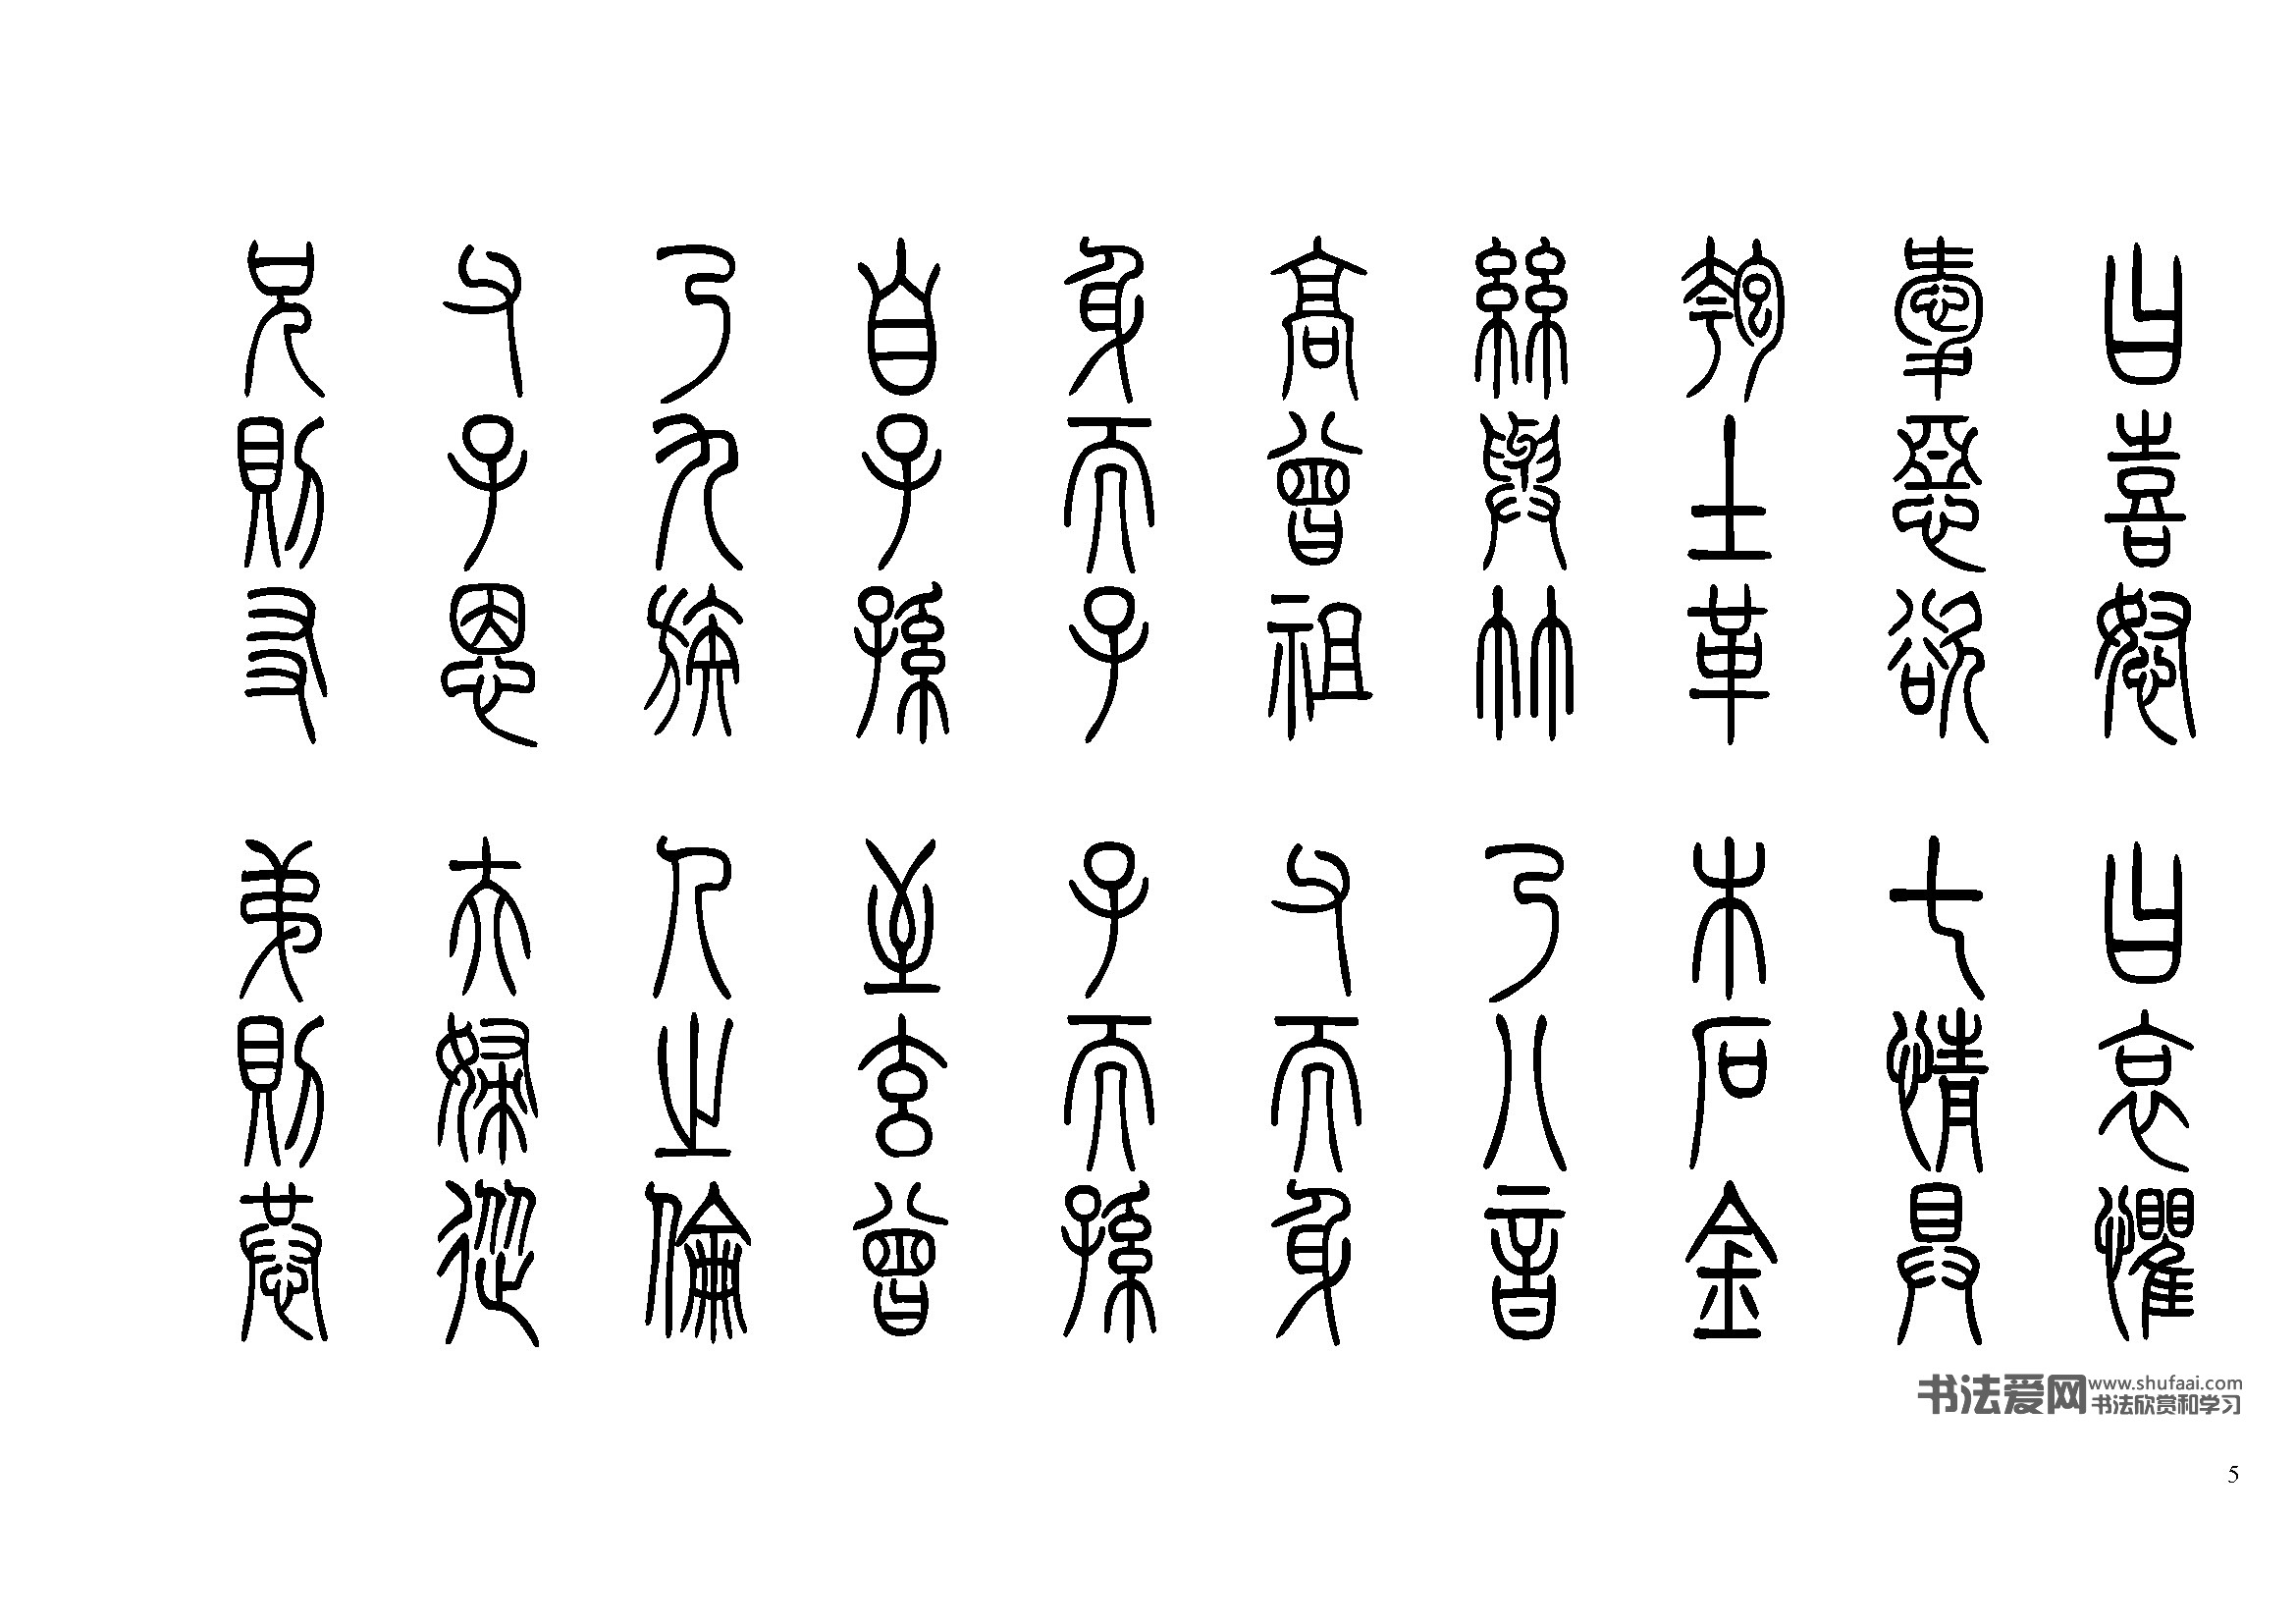 曰喜怒 曰哀懼
愛惡欲 七情具
匏土革 木石金
絲與竹 乃八音
高曾祖 父而身
身而子 子而孫
自子孫 至玄曾
乃九族 人之倫
父子恩 夫婦從
兄則友 弟則恭
书法爱网 www.shufaai.com
书法欣赏和学习
5